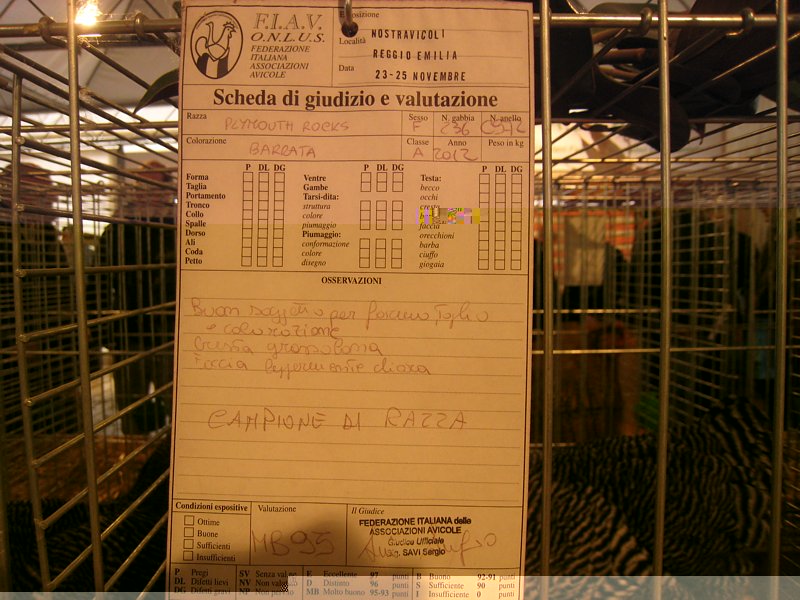 F.I.A.V.
O.N.L.U.S.
FEDERAZIONE
ITALIANA
ASSOCIAZIONI
AVICOLE
Esposizione
Località NOSTRAVICOLI
REGGIO EMILIA
Data 23-25 NOVEMBRE
Scheda di giudizio e valutazione
Razza PLYMOUTH ROCKS
Sesso F N. gabbia 236 N. anello
Colorazione BARRATA
Classe A Anno 2012 Peso in kg
P DL DG P DL DG P DL DG
Forma Ventre Testa:
Taglia Gambe becco
Portamento Tarsi-dita: occhi
Tronco struttura cresta
Collo colore
Spalle piumaggio faccia
Dorso Piumaggio: orecchioni
Ali conformazione barba
Coda colore ciuffo
Petto disegno giogaia
OSSERVAZIONI
Buon soggetto per forma, Taglia
e colorazione
Cresta grossolana
Faccia leggermente chiara
CAMPIONE DI RAZZA
Condizioni espositive Valutazione Il Giudice
Ottime
Buone
Sufficienti
Insufficienti
MB 95
FEDERAZIONE ITALIANA delle
ASSOCIAZIONI AVICOLE
Giudice Ufficiale
SAVI Sergio
P Pregi SV Senza E Eccellente 97 punti B Buono 92-91 punti
DL Difetti lievi NV Non D Distinto 96 punti S Sufficiente 90 punti
DG Difetti gravi NP Non MB Molto buono 95-93 punti I Insufficiente 0 punti